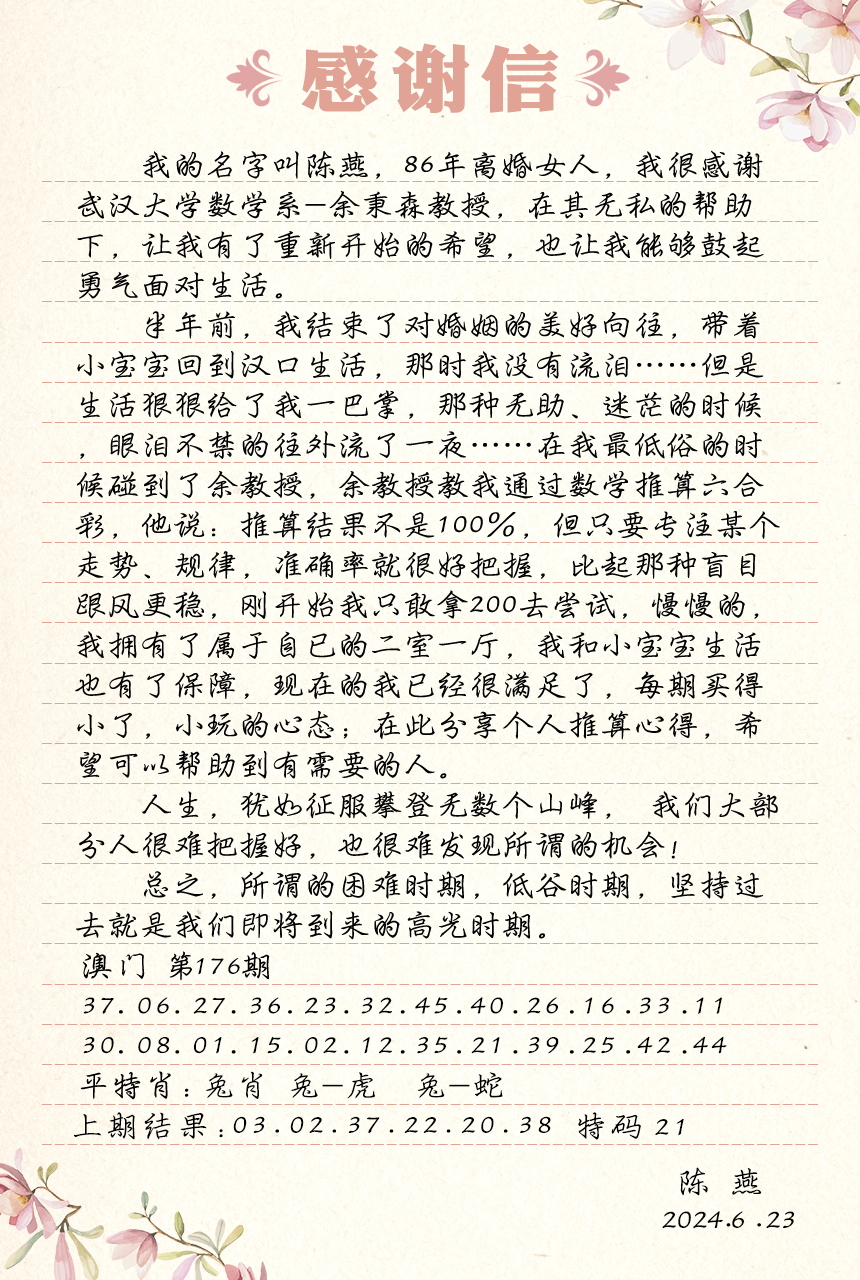 感谢信
我的名字叫陈燕，86年离婚女人，我很感谢
武汉大学数学系—余秉森教授，在其无私的帮助
下，让我有了重新开始的希望，也让我能够鼓起
勇气面对生活。
半年前，我结束了对婚姻的美好向往，带着
小宝宝回到汉口生活，那时我没有流泪……但是
生活狠狠给了我一巴掌，那种无助、迷茫的时候
，眼泪不禁的往外流了一夜……在我最低俗的时
候碰到了余教授，余教授教我通过数学推算六合
彩，他说：推算结果不是100%，但只要专注某个
走势、规律，准确率就很好把握，比起那种盲目
跟风更稳，刚开始我只敢拿200去尝试，慢慢的，
我拥有了属于自已的二室一厅，我和小宝宝生活
也有了保障，现在的我已经很满足了，每期买得
小了，小玩的心态；在此分享个人推算心得，希
望可以帮助到有需要的人。
人生，犹如征服攀登无数个山峰， 我们大部
分人很难把握好，也很难发现所谓的机会！
总之，所谓的困难时期，低谷时期，坚持过
去就是我们即将到来的高光时期。
澳门 第176期
37.06.27.36.23.32.45.40.26.16.33.11
30.08.01.15.02.12.35.21.39.25.42.44
平特肖：兔肖 兔—虎 兔—蛇
上期结果：03.02.37.22.20.38 特码 21
陈 燕
2024.6.23